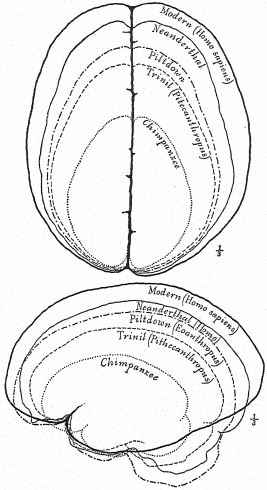 Modern (Homo sapiens)
Neanderthal
Piltdown
Trinil (Pitecanthropus)
Chimpanzee
Modern (Homo sapiens)
Neanderthal (Homo)
Piltdown (Eoanthropus)
Trinil (Pithecanthropus)
Chimpanzee